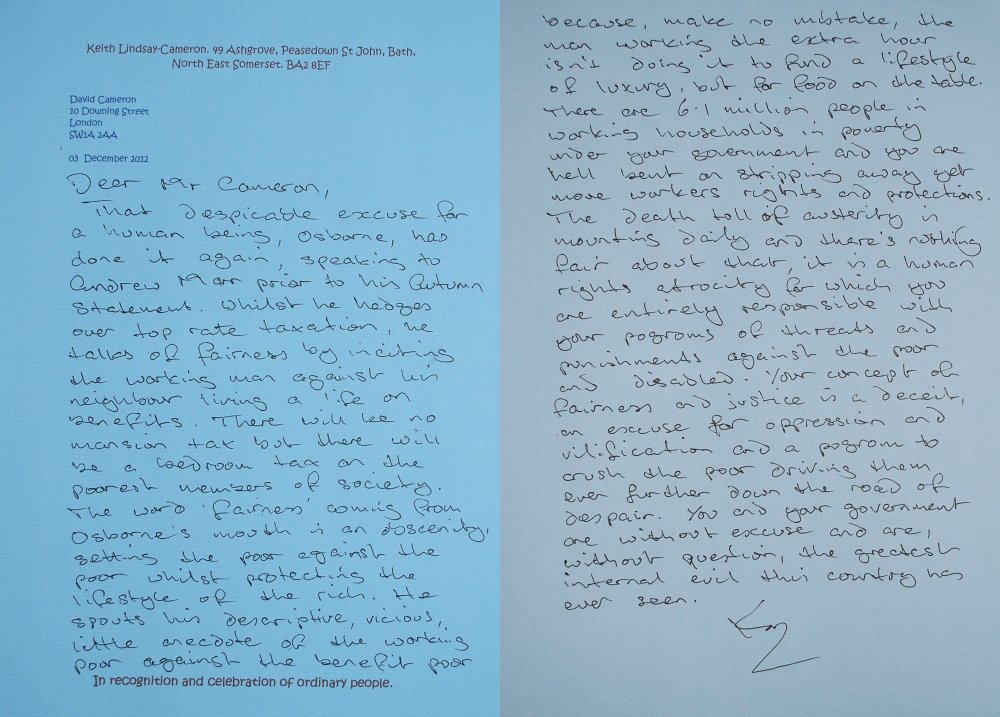 Keith Lindsay-Cameron. 49 Ashgrove, Peasedown St John, Bath,
North East Somerset. BA2 8EF
David Cameron
10 Downing Street
London
SW1A 2AA
03 December 2012
Dear Mr Cameron,
That despicable excuse for
a human being, Osborne, has
done it again, speaking to
Andrew Marr prior to his Autumn
Statement. Whilst he hedges
over top rate taxation, he
talks of fairness by inciting
the working man against his
neighbour living a life on
benefits. There will be no
mansion tax but there will
be a bedroom tax on the
poorest members of society.
The word 'fairness' coming from
Osborne's mouth is an obscenity,
setting the poor against the
poor whilst protecting the
lifestyle of the rich. He
spouts his descriptive, vicious,
little anecdote of the working
poor against the benefit poor
In recognition and celebration of ordinary people.
because, make no mistake, the
man working the extra hour
isn't doing it to fund a lifestyle
of luxury, but for food on the table.
There are 6.1 million people in
working households in poverty
under your government and you are
hell bent on stripping away yet
more workers rights and protections.
The death toll of austerity is
mounting daily and there's nothing
fair about that, it is a human
rights atrocity for which you
are entirely responsible with
your pogroms of threats and
punishments against the poor
and disabled. Your concept of
fairness and justice is a deceit,
an excuse for oppression and
vilification and a pogrom to
crush the poor driving them
ever further down the road of
despair. You and your government
are without excuse and are,
without question, the greatest
internal evil this country has
ever seen.